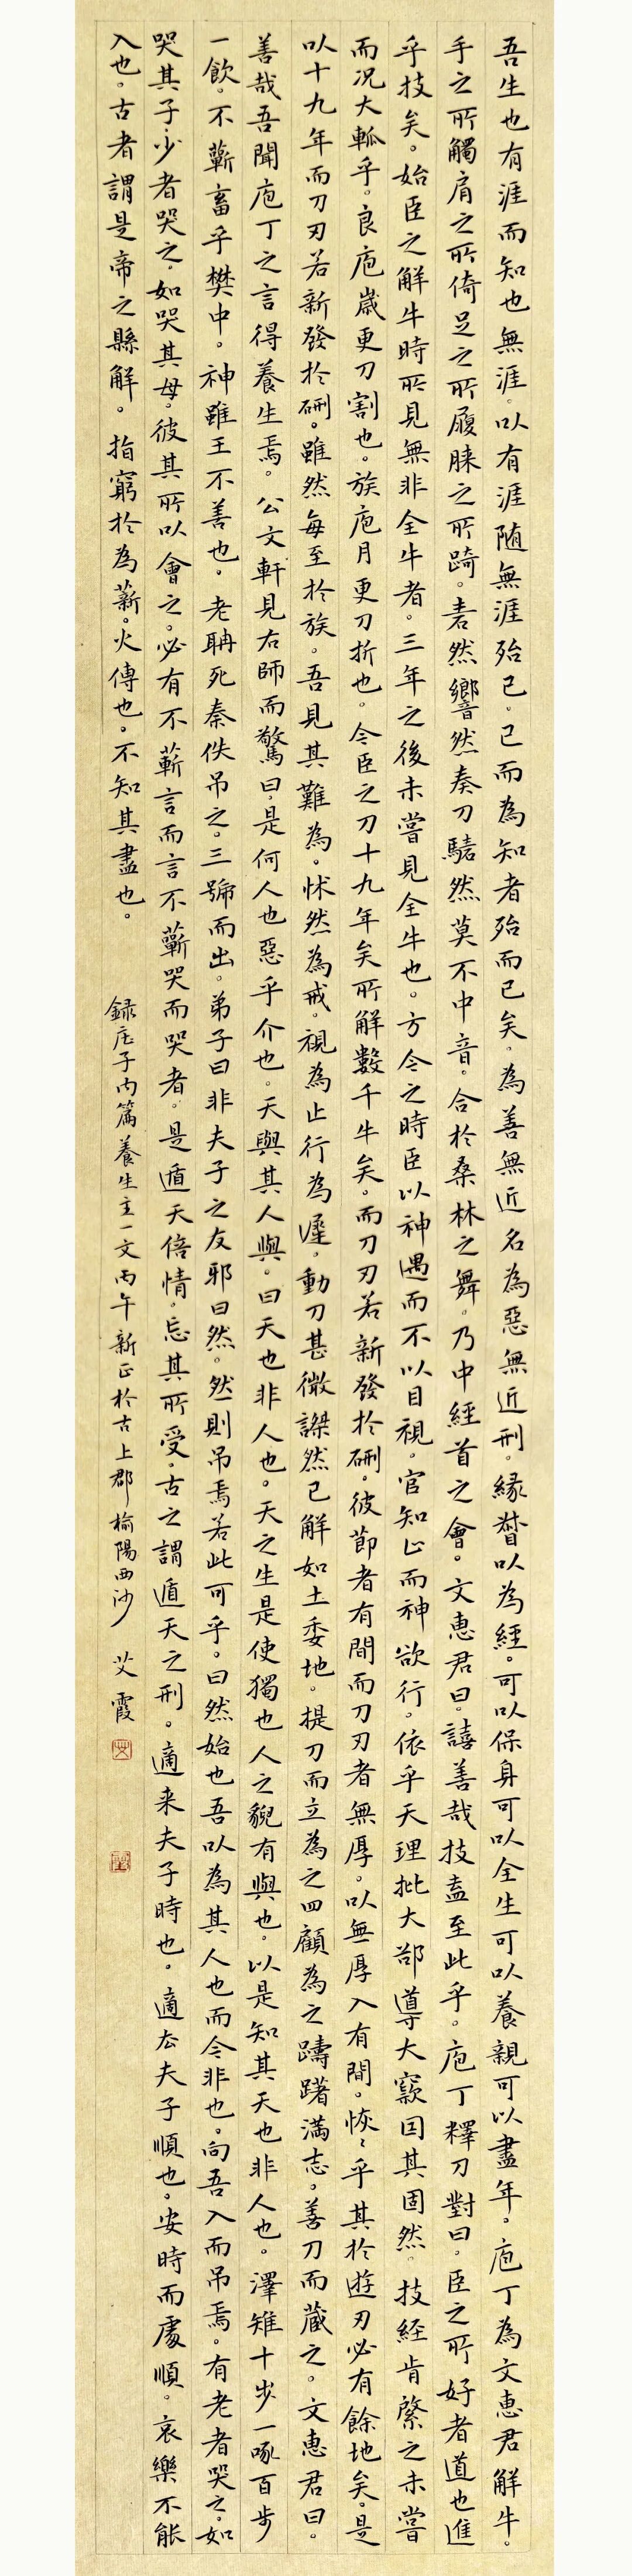 吾生也有涯而知也無涯。以有涯随無涯殆已。已而為知者殆而已矣。為善無近名為惡無近刑。緣督以為經。可以保身可以全生可以養親可以盡年。庖丁為文惠君解牛。
手之所觸肩之所倚足之所履膝之所踦。砉然嚮然奏刀騞然莫不中音。合於桑林之舞。乃中經首之會。文惠君曰。譆善哉技盍至此乎。庖丁釋刀對曰。臣之所好者道也進
乎技矣。始臣之解牛時所見無非全牛者。三年之後未嘗見全牛也。方今之時臣以神遇而不以目視。官知止而神欲行。依乎天理批大郤導大窾因其固然。技經肯綮之未嘗
而況大軱乎。良庖歲更刀割也。族庖月更刀折也。今臣之刀十九年矣所解數千牛矣。而刀刃若新發於硎。彼節者有間而刀刃者無厚。以無厚入有間。恢々乎其於遊刃必有餘地矣。是
以十九年而刀刃若新發於硎。雖然每至於族。吾見其難為。怵然為戒。視為止行為遲。動刀甚微謋然已解如土委地。提刀而立為之四顧為之躊躇滿志。善刀而藏之。文惠君曰。
善哉吾聞庖丁之言得養生焉。公文軒見右師而驚曰是何人也惡乎介也。天與其人與。曰天也非人也。天之生是使獨也人之貌有與也。以是知其天也非人也。澤雉十步一啄百步
一飲。不蘄畜乎樊中。神雖王不善也。老聃死秦佚吊之。三號而出。弟子曰非夫子之友耶曰然。然則吊焉若此可乎。曰然始也吾以為其人也而今非也。向吾入而吊焉。有老者哭之。如
哭其子少者哭之。如哭其母。彼其所以會之。必有不蘄言而言不蘄哭而哭者。是遁天倍情。忘其所受。古之謂遁天之刑。適来夫子時也。適去夫子順也。安時而處順。哀樂不能
入也。古者謂是帝之縣解。指窮於為薪。火傳也。不知其盡也。
録庄子内篇養生主一文丙午新正於古上郡榆陽西沙 艾霞